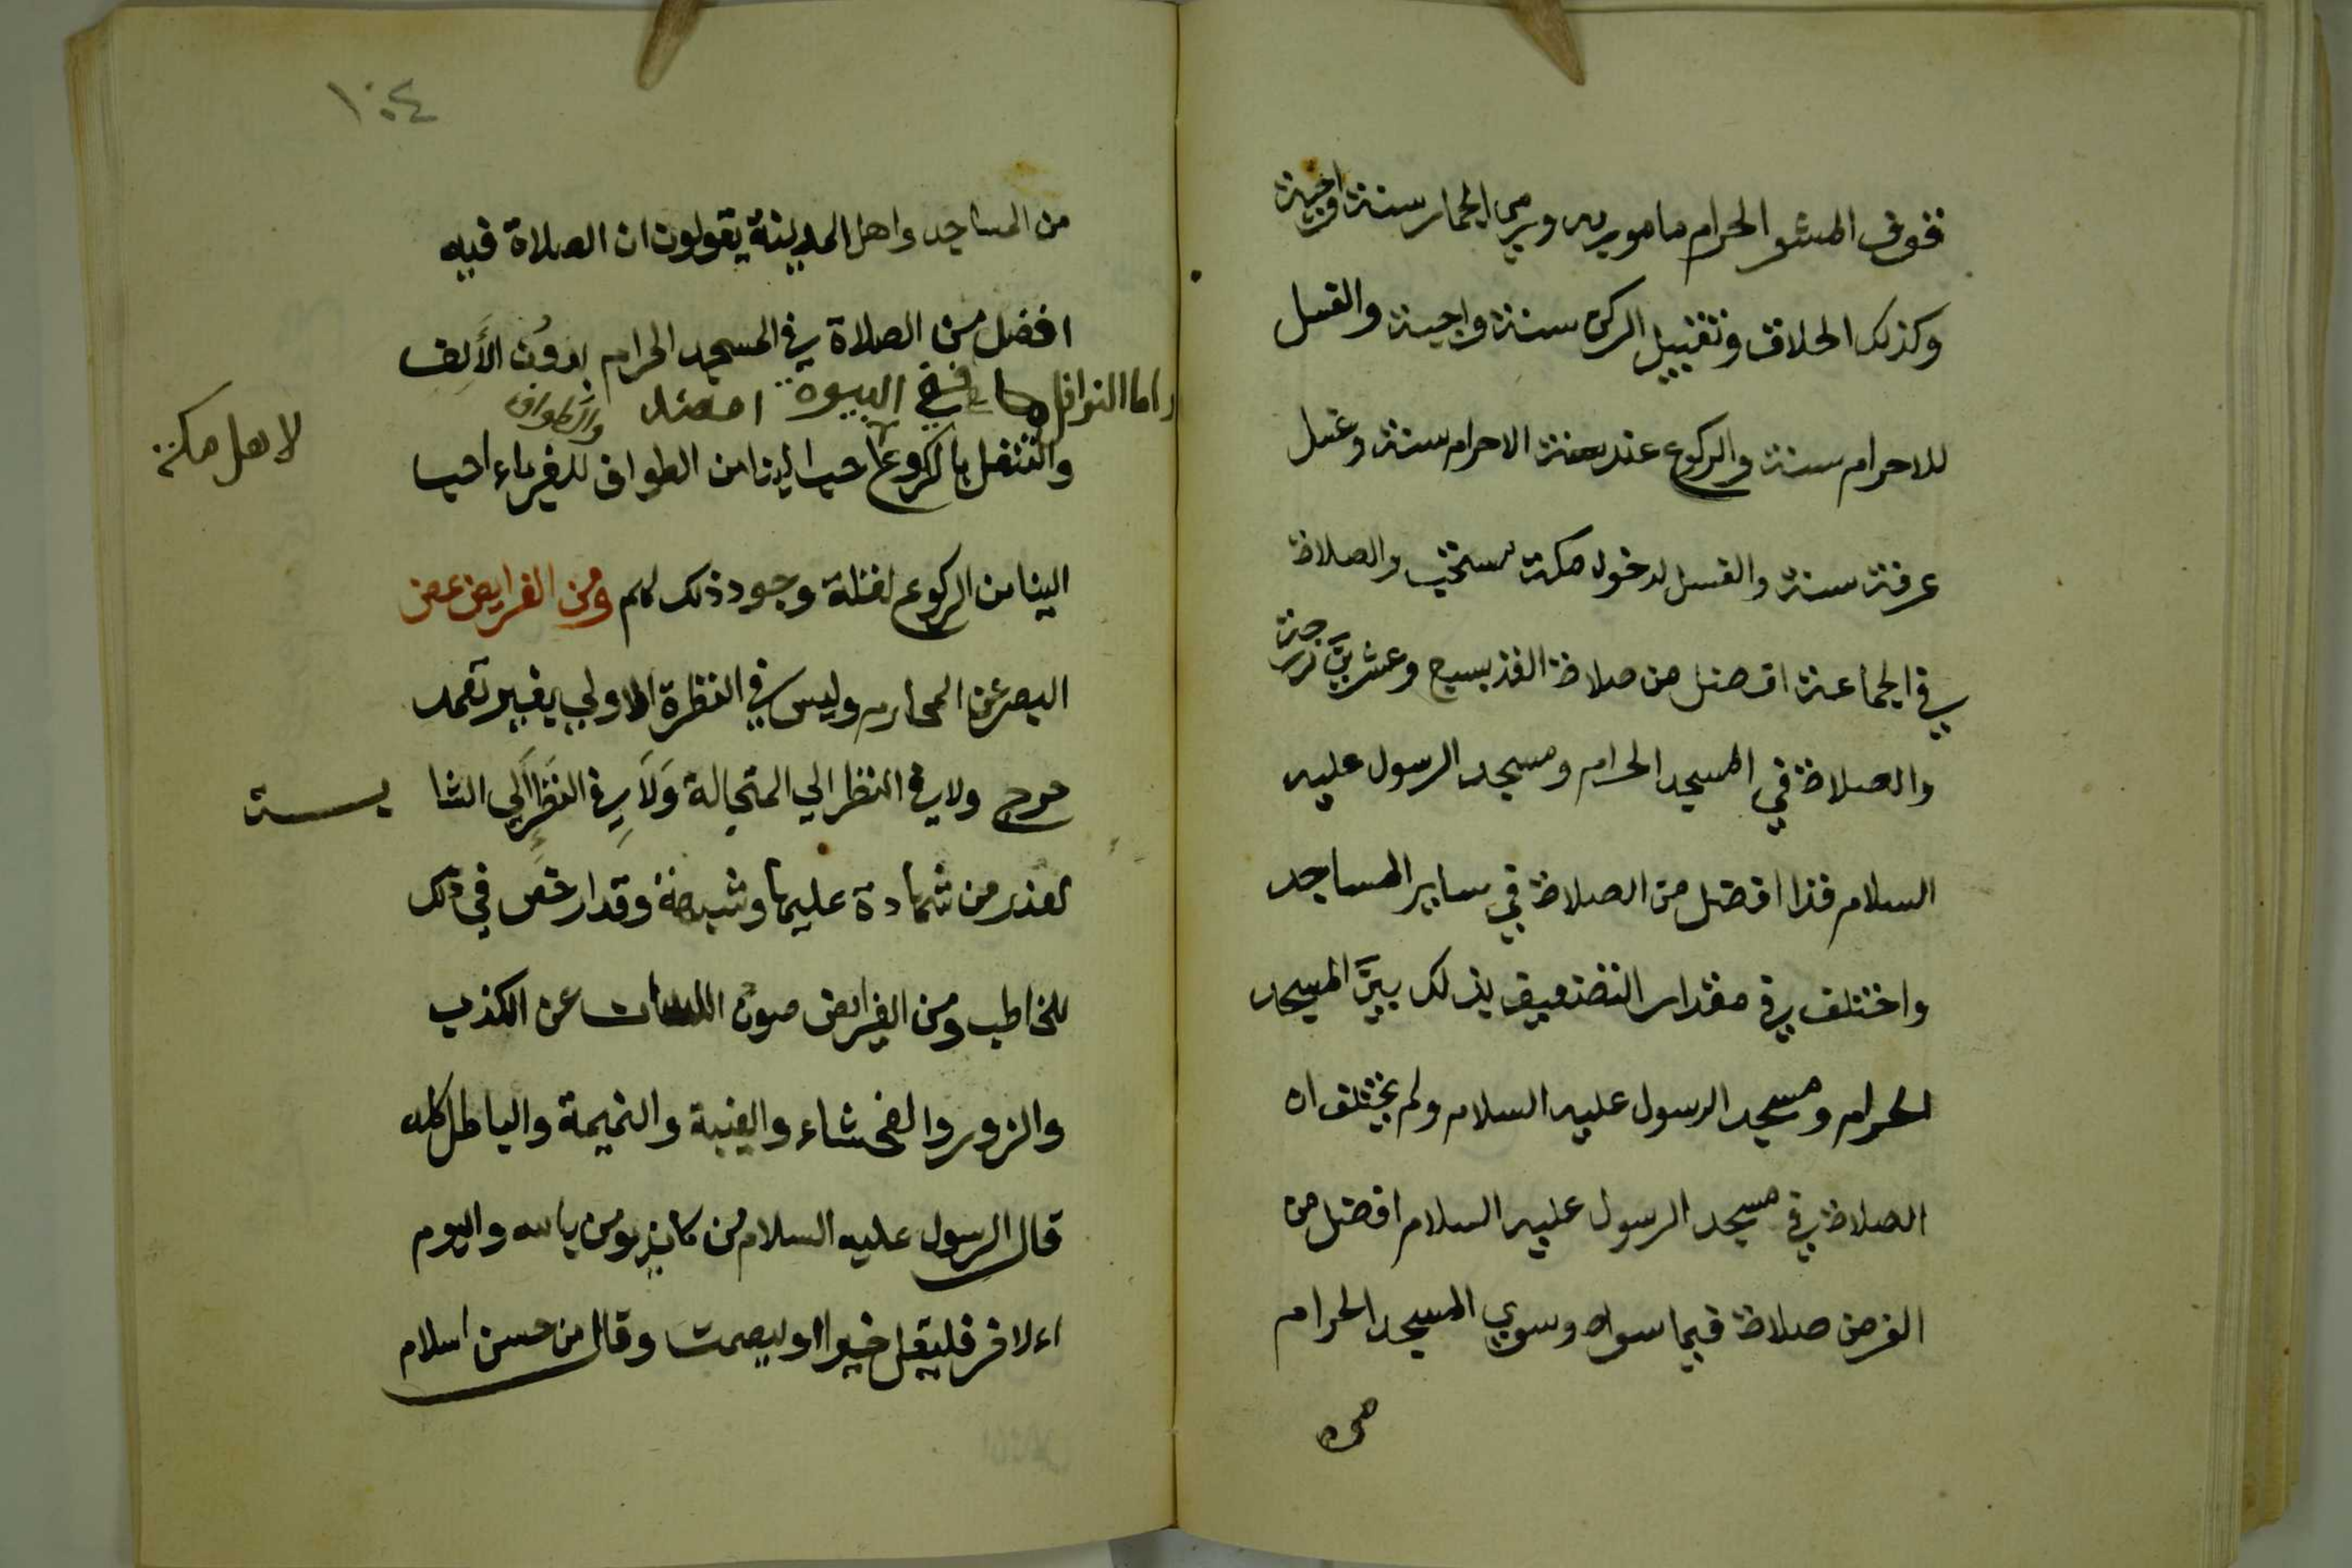 فوق المشعر الحرام مامور به ورمي الجمار سنة واجبة
وكذلك الحلاق وتقبيل الركن سنة واجبة والغسل
للاحرام سنة والركوع عند الاحرام سنة وغسل
عرفة سنة والغسل لدخول مكة مستحب والصلاة
في الجماعة افضل من صلاة الفذ بسبع وعشرين درجة
والصلاة في المسجد الحرام ومسجد الرسول عليه
السلام فذا افضل من الصلاة في ساير المساجد
واختلف في مقدار التضعيف بذلك بين المسجد
الحرام ومسجد الرسول عليه السلام ولم يختلف ان
الصلاة في مسجد الرسول عليه السلام افضل من
الف من صلاة فيما سواه وسوي المسجد الحرام
من
١٠٤
من المساجد واهل المدينة يقولون ان الصلاة فيه
افضل من الصلاة في المسجد الحرام بدون الألف
واما النوافل ففي البيوت افضل
والتنفل بالركوع لاهل مكة احب الينا من الطواف والطواف للغرباء احب
الينا من الركوع لقلة وجود ذلك لهم ومن الفرايض غض
البصر عن المحارم وليس في النظرة الاولي بغير تعمد
حرج ولا في النظر الي المتجالة وَلَا في النظر الَي الشا بـــة
لعذر من شهادة عليها وشبهه وقد ارخص في ذلك
للخاطب ومن الفرايض صون اللسان عن الكذب
والزور والفحشاء والغيبة والنميمة والباطل كله
قال الرسول عليه السلام من كان يومن بالله واليوم
الاخر فليقل خيرا او ليصمت وقال من حسن اسلام